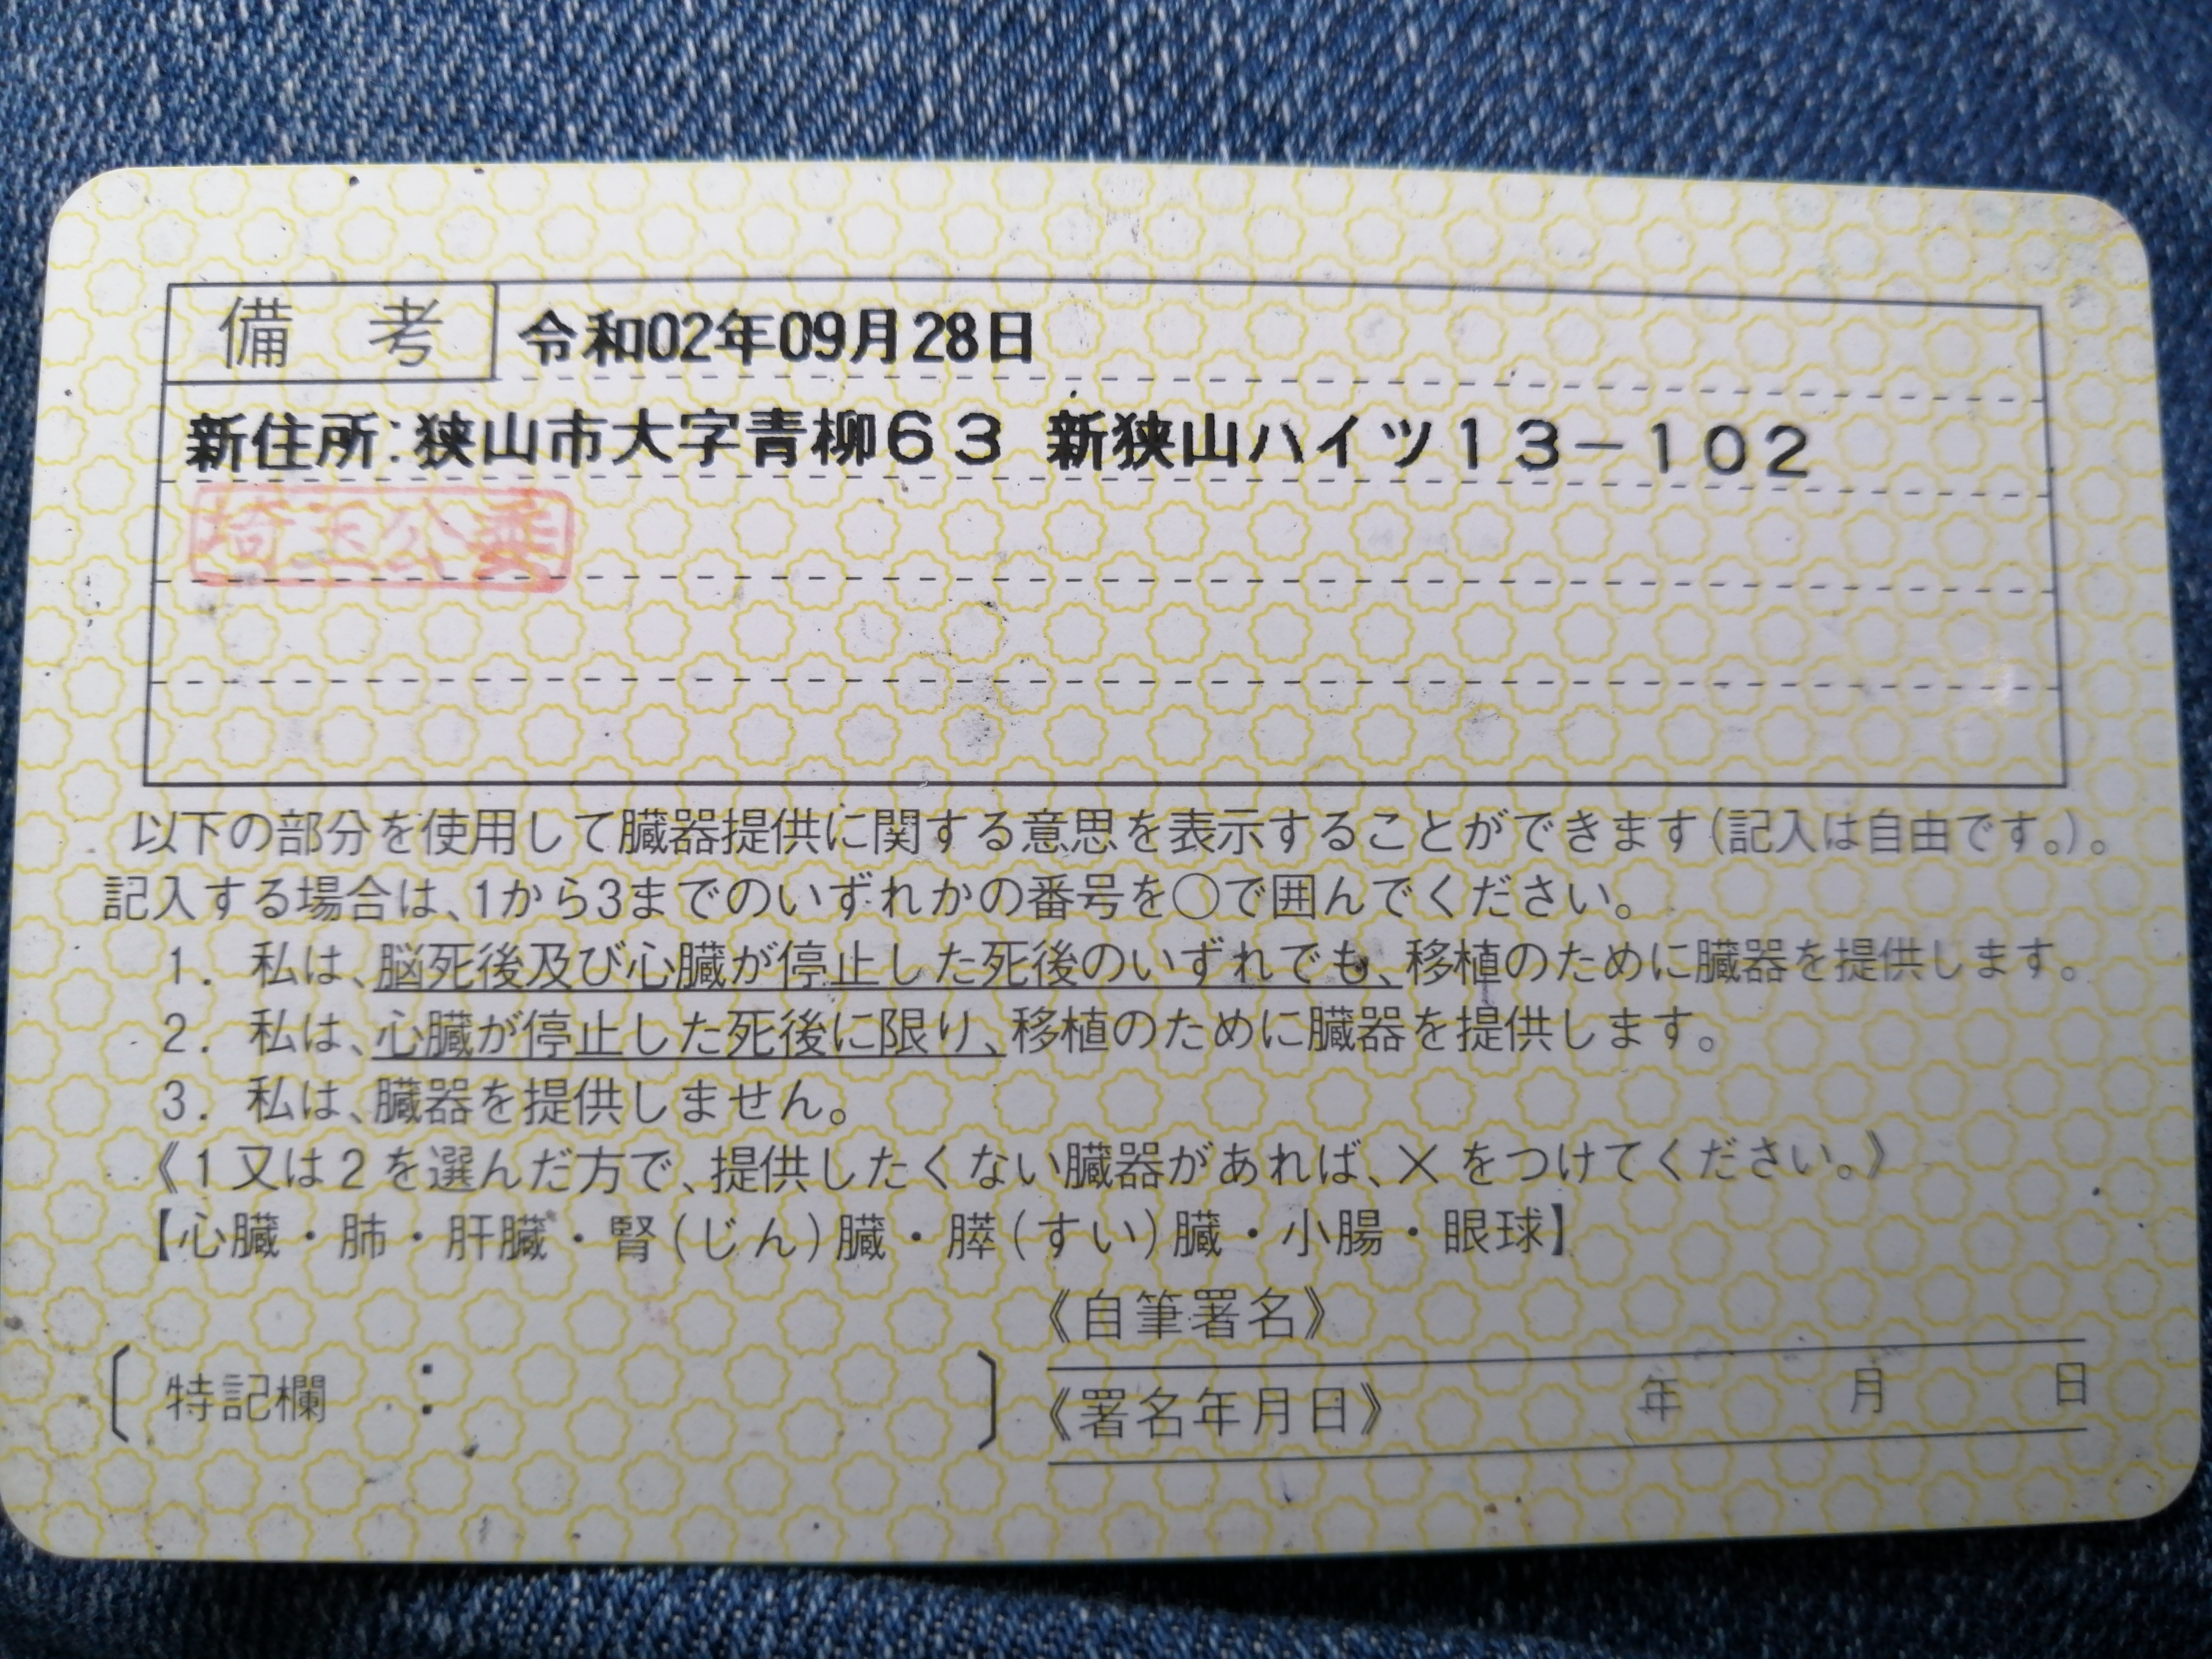 備考 令和02年09月28日
新住所:狭山市大字青柳63 新狭山ハイツ13-102
埼玉公委
以下の部分を使用して臓器提供に関する意思を表示することができます(記入は自由です。)。
記入する場合は、1から3までのいずれかの番号を○で囲んでください。
1. 私は、脳死後及び心臓が停止した死後のいずれでも、移植のために臓器を提供します。
2. 私は、心臓が停止した死後に限り、移植のために臓器を提供します。
3. 私は、臓器を提供しません。
《1又は2を選んだ方で、提供したくない臓器があれば、×をつけてください。》
【心臓・肺・肝臓・腎(じん)臓・膵(すい)臓・小腸・眼球】
《自筆署名》
〔特記欄 : 〕
《署名年月日》 年 月 日